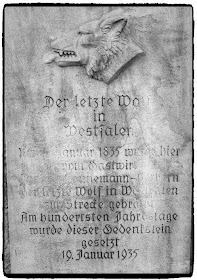 Der letzte Wolf
in
Westfalen
Januar 1835 wurde hier
vom Gastwirt
der letzte Wolf in Westfalen
zur Strecke gebracht
Am hundertsten Jahrestage
wurde dieser Gedenkstein
gesetzt
19. Januar 1935